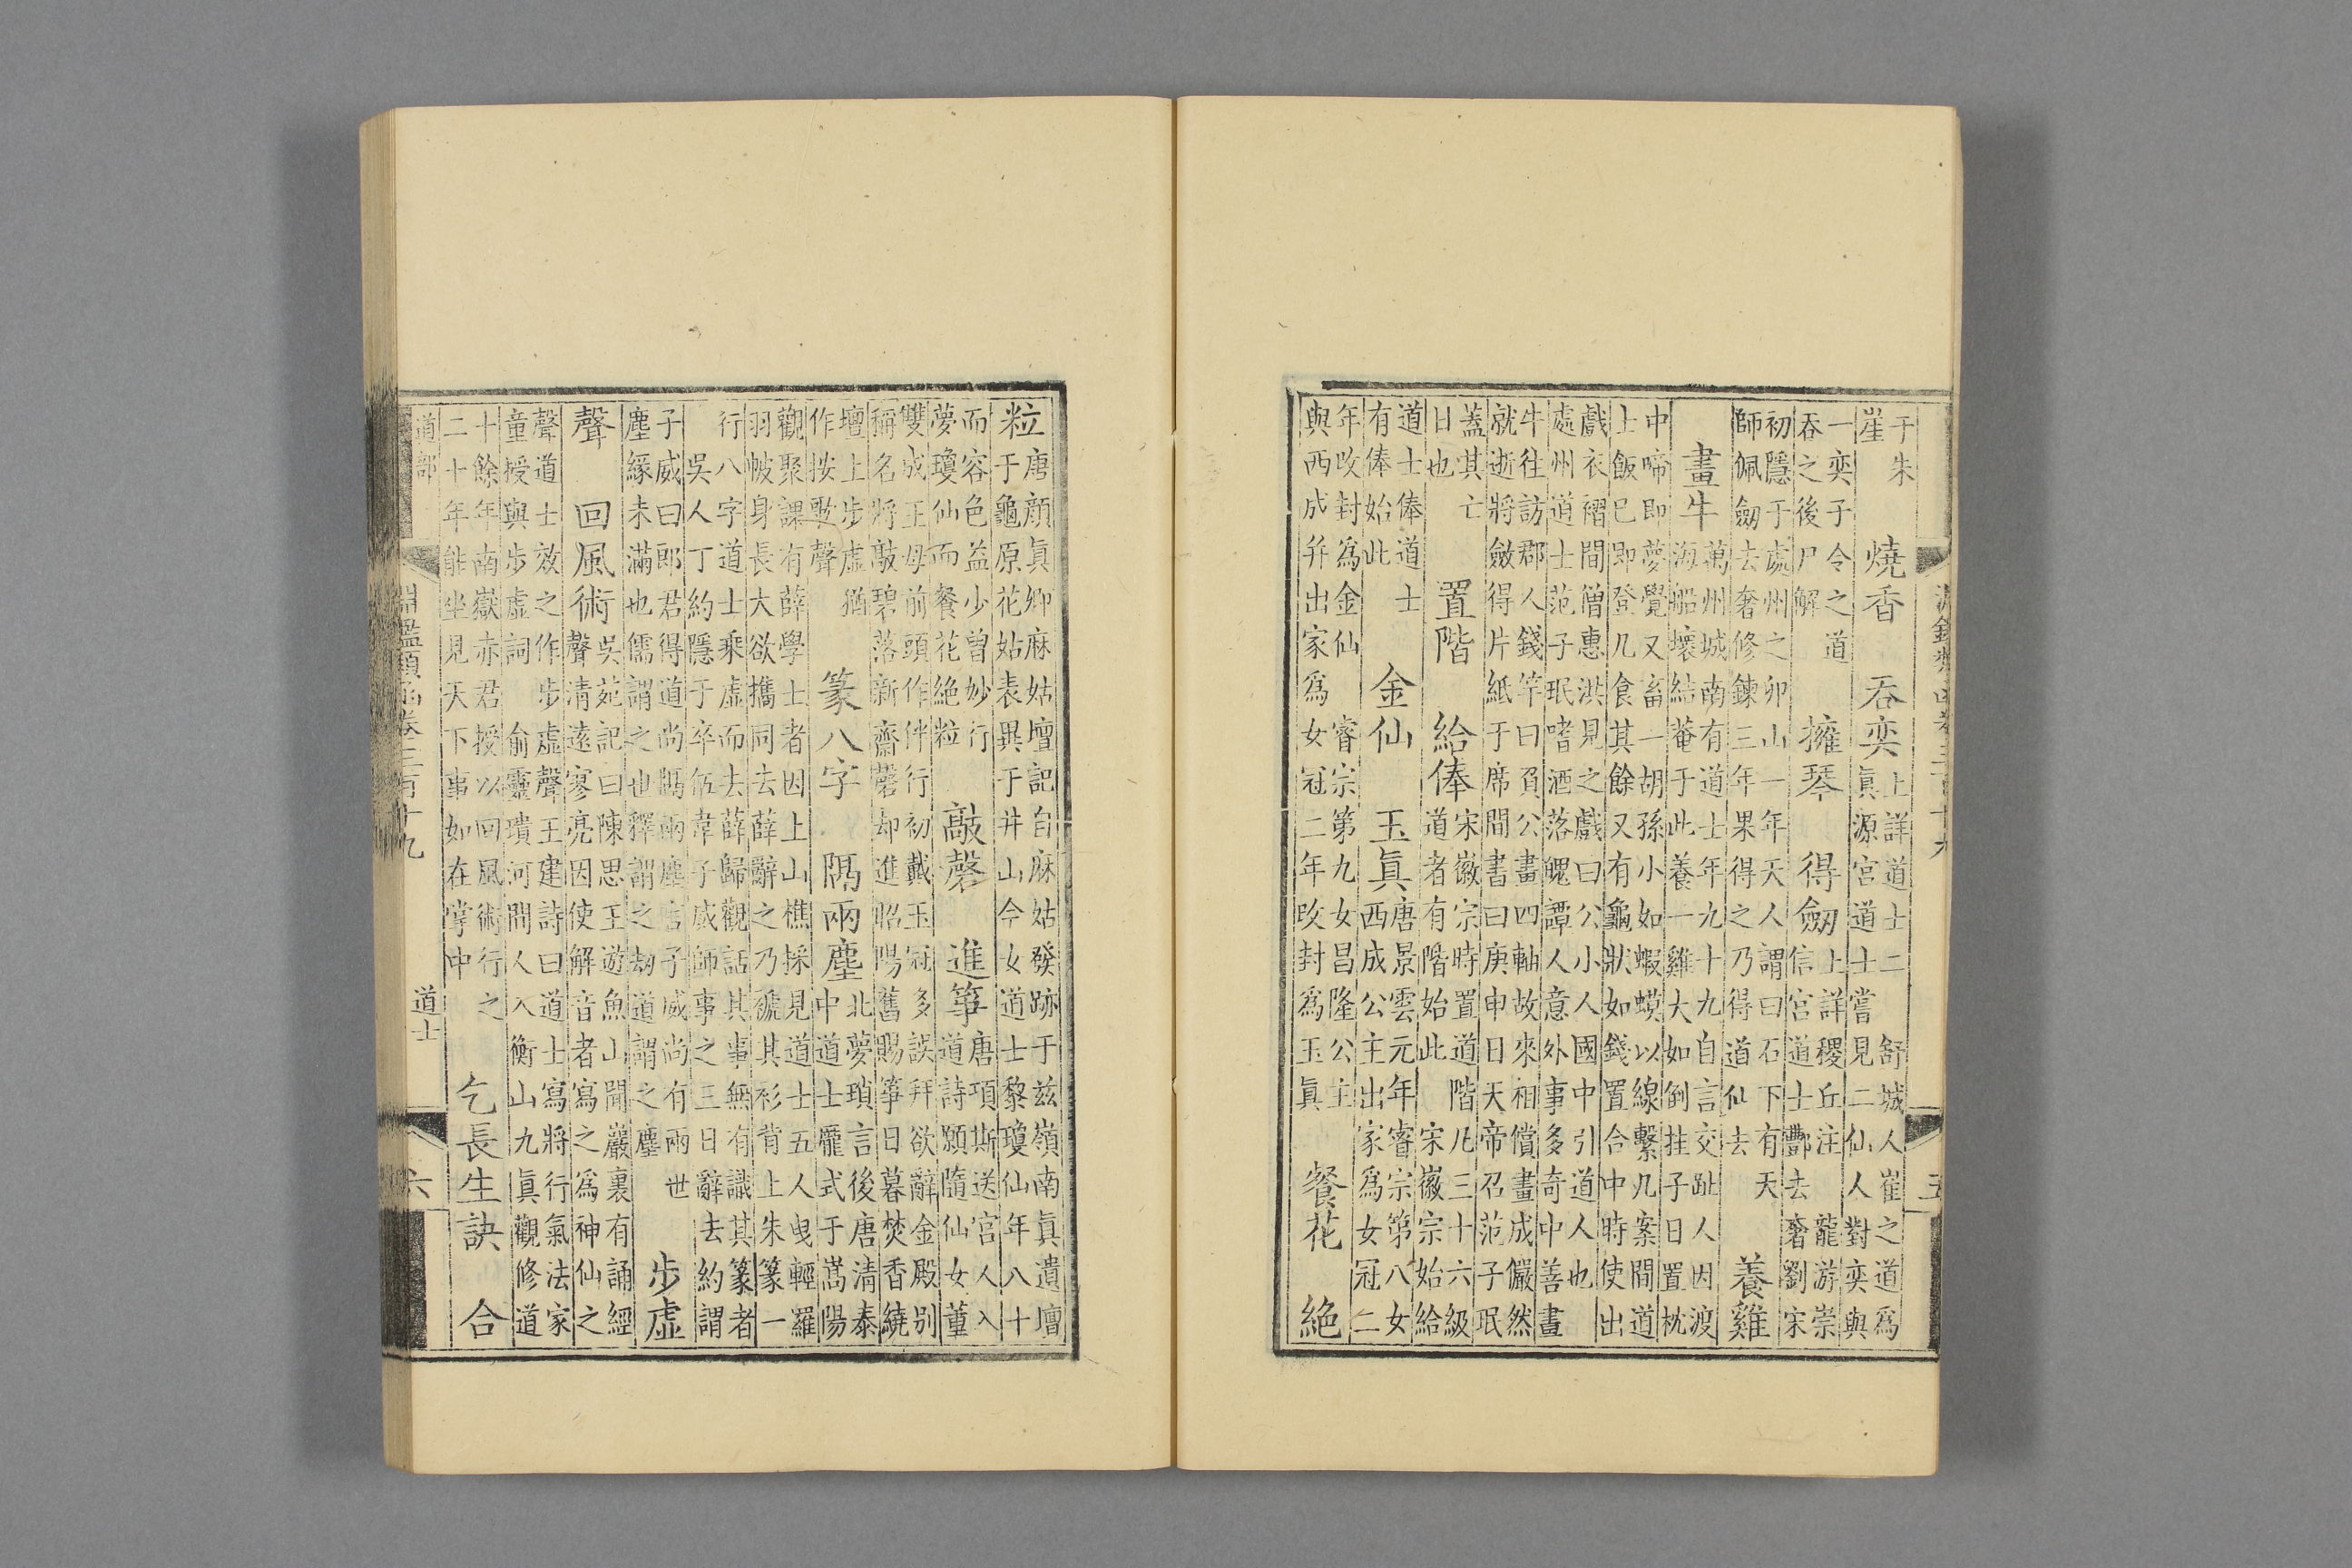 淵鑑類函卷三百十九 五
于朱
崖
燒香 吞奕
上詳道士二 舒城人崔之道爲
眞源宮道士嘗見二仙人對奕與
一奕子令之道
吞之後尸解
擁琴 得劒
上詳稷丘注 龍游崇
信宮道士酆去奢劉宋
初隱于處州之卯山一年天人謂曰石下有天
師佩劒去奢修鍊三年果得之乃得道仙去
養雞
畫牛
萬州城南有道士年九十九自言交趾人因渡
海船壞結菴于此養一雞大如倒挂子日置枕
中啼即夢覺又畜一胡孫小如蝦蟆以線繫几案間道
士飯巳即登几食其餘又有龜狀如錢置合中時使出
戲衣褶間僧惠洪見之戲曰公小人國中引道人也
處州道士范子珉嗜酒落魄譚人意外事多奇中善畫
牛往訪郡人錢竿曰負公畫四軸故來相償畫成儼然
就逝將斂得片紙于席間書曰庚申日天帝召范子珉
蓋其亡
日也
置階 給俸
宋徽宗時置道階凡三十六級
道者有階始此 宋徽宗始給
道士俸道士
有俸始此
金仙 玉眞
唐景雲元年睿宗第八女
西成公主出家爲女冠二
年改封爲金仙 睿宗第九女昌隆公主
與西成幷出家爲女冠二年改封爲玉眞
餐花 絕
粒
唐顏眞卿麻姑壇記自麻姑發跡于茲嶺南眞遺壇
于龜原花姑表異于井山今女道士黎瓊仙年八十
而容色益少曾妙行
夢瓊仙而餐花絕粒
敲磬 進箏
唐項斯送宮人入
道詩願隨仙女董
雙成王母前頭作伴行初戴玉冠多誤拜欲辭金殿別
稱名將敲碧落新齋磬却進昭陽舊賜箏日暮焚香繞
壇上步虛猶
作按歌聲
篆八字 隔兩塵
北夢瑣言後唐清泰
中道士龐式于嵩陽
觀聚課有薛學士者因上山樵採見道士五人曳輕羅
羽帔身長大欲攜同去薛辭之乃褫其衫背上朱篆一
行八字道士乘虛而去薛歸觀話其事無有識其篆者
吳人丁約隱于卒伍韋子威師事之三日辭去約謂
子威曰郎君得道尚隔兩塵言子威尚有兩世
塵緣未滿也儒謂之也釋謂之劫道謂之塵
步虛
聲 回風術
吳苑記曰陳思王遊魚山聞巖裏有誦經
聲清遠寥亮因使解音者寫之爲神仙之
聲道士效之作步虛聲王建詩曰道士寫將行氣法家
童授與步虛詞 俞靈璝河間人入衡山九眞觀修道
十餘年南嶽赤君授以回風術行之
二十年能坐見天下事如在掌中
乞長生訣 合
道部 淵鑑類函卷三百十九 道士 六